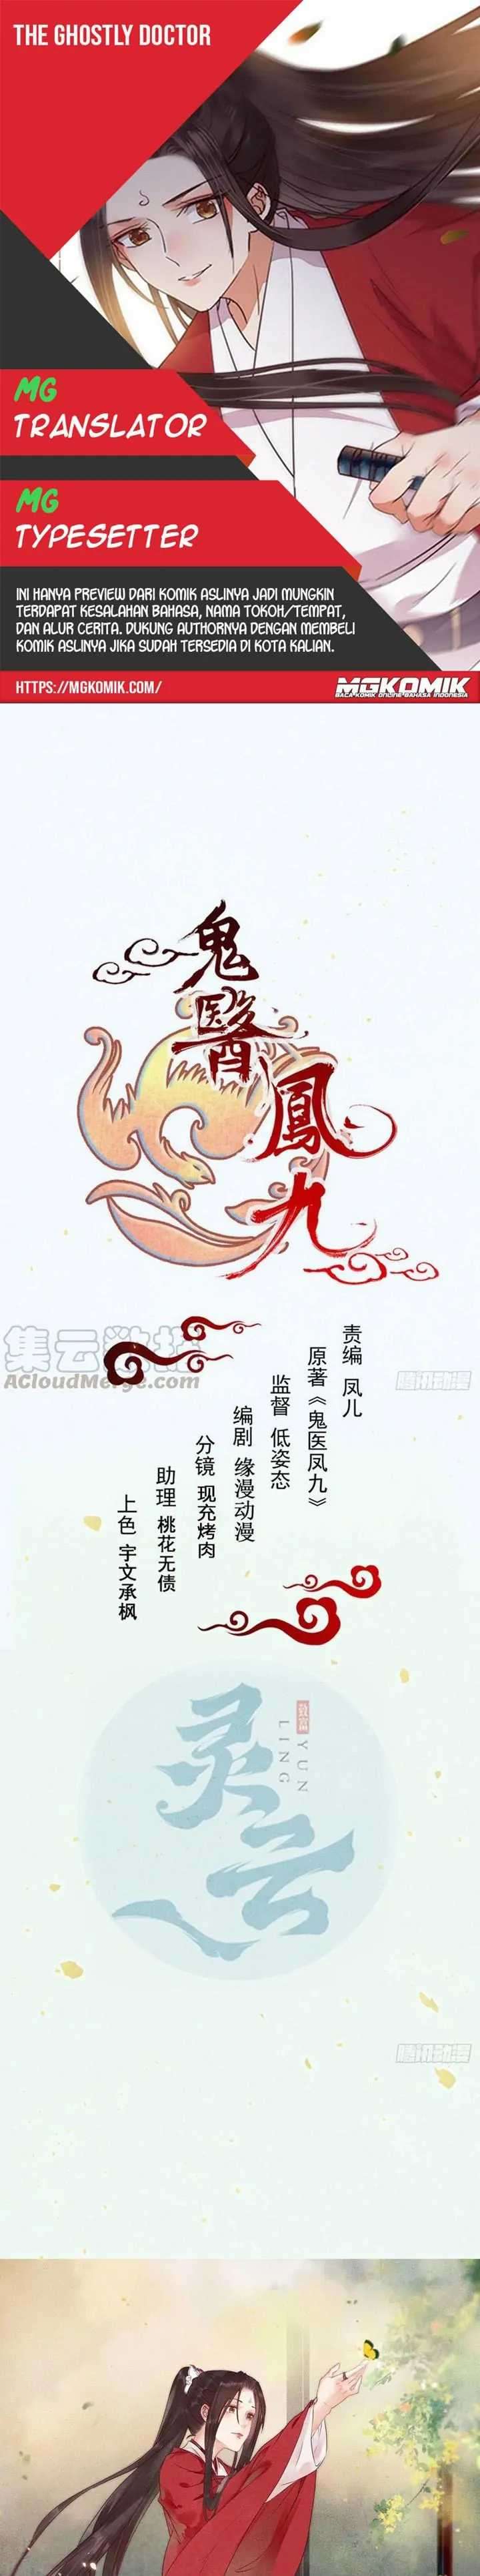 THE GHOSTLY DOCTOR
MG
TRANSLATOR
MG
TYPESETTER
INI HANYA PREVIEW DARI KOMIK ASLINYA JADI MUNGKIN
TERDAPAT KESALAHAN BAHASA, NAMA TOKOH/TEMPAT,
DAN ALUR CERITA. DUKUNG AUTHORNYA DENGAN MEMBELI
KOMIK ASLINYA JIKA SUDAH TERSEDIA DI KOTA KALIAN.
HTTPS://MGKOMIK.COM/
MGKOMIK
BACA KOMIK ONLINE BAHASA INDONESIA
鬼
醫
鳳
九
集云数据
ACloudMerge.com
腾讯动漫
责编 凤儿
原著《鬼医凤九》
监督 低姿态
编剧 缘漫动漫
分镜 现充烤肉
助理 桃花无债
上色 宇文承枫
灵云
致富
YUN
LING
腾讯动漫